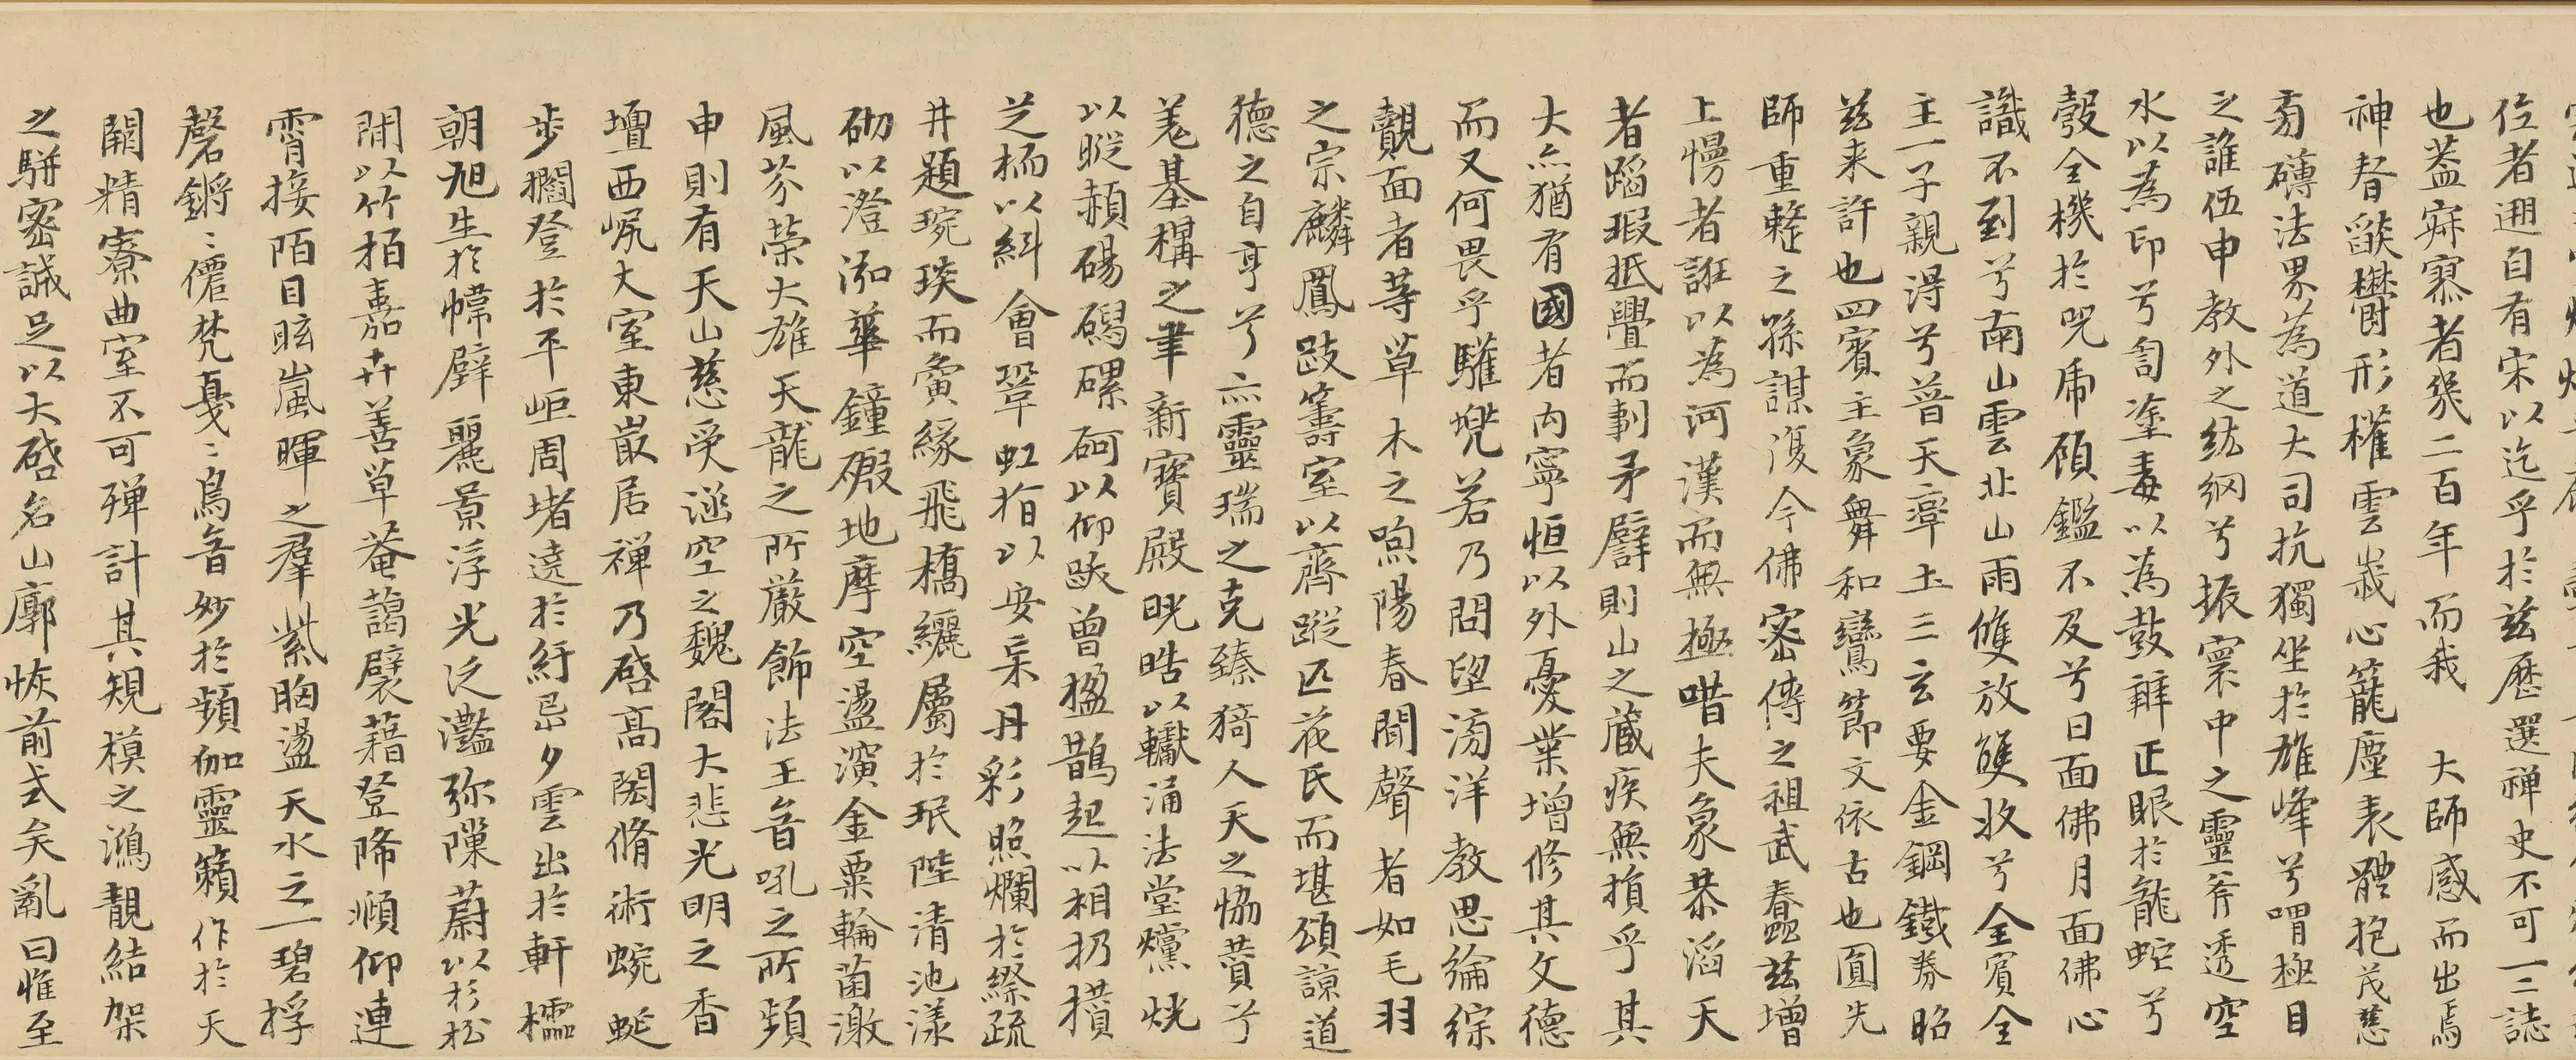 位者遡自有宋以迄乎於兹歷選禅史不可一二誌
也盖寂寥者幾二百年而我 大師感而出焉
神眷燄欝形權雲峩心籠塵表體抱茂慈
旁礴法界為道大司抗獨坐於雄峰兮喟極目
之誰伍申教外之紘綱兮振寰中之靈斧透空
水以為印兮訇塗毒以為鼓辤正眼於龍蛇兮
彀全機於咒虎頎鑑不及兮日面佛月面佛心
識不到兮南山雲北山雨雙放雙收兮全賓全
主一子親淂兮普天率土三玄要金鋼鐵券昭
兹来許也四賓主象舞和鸞節文依古也圓先
師重整之緜謀復今佛密傳之祖武蠢兹增
上慢者誑以為河漢而無極唶夫象恭滔天
者蹈瑕抵舋而剚矛臂則山之蔵疾無損乎其
大亦猶有國者内寧恒以外憂業增修其文德
而又何畏乎驩兠若乃問望滂洋教思綸綜
覿面者等草木之喣陽春聞聲者如毛羽
之宗麟鳳跂籌室以齊蹤匹花氏而堪頌諒道
德之自亨兮亦靈瑞之克臻猗人天之恊賛兮
羗基構之聿新寶殿晄晧以轥涌法堂爣烍
以曒赬碭碣磥砢以仰跋曾楹鵲起以相扔撗
芝栭以紏會翠虹指以安宗丹彩照爛於綵疏
井題琬琰而夤緣飛橋纚屬於珉陛清池漾
砌以澄泓華鐘礟地摩空盪濱金粟輪菌激
風芬荣大雄天龍之所嚴飾法王音吼之所頻
申則有天山慈受涵空之魏閣大悲光明之香
壇西㞓丈室東嵗居禅乃啓高閎脩術蜿蜒
步櫩登於平岠周堵遶於紆㠯夕雲出於軒櫺
朝旭生於幃屛麗景浮光泛灩弥隟蔚以杉松
間以竹栢嘉卉善草菴藹裂藉登降順仰連
霄接陌目眩嵐暉之羣紫胸盪天水之一碧捊
磬鏘〻儷梵戞〻鳥音妙於頻伽靈籟作於天
闢精寮曲室不可殫計其規模之鴻靚結架
之駢密誠足以大啓名山廓恢前式矣亂曰惟至